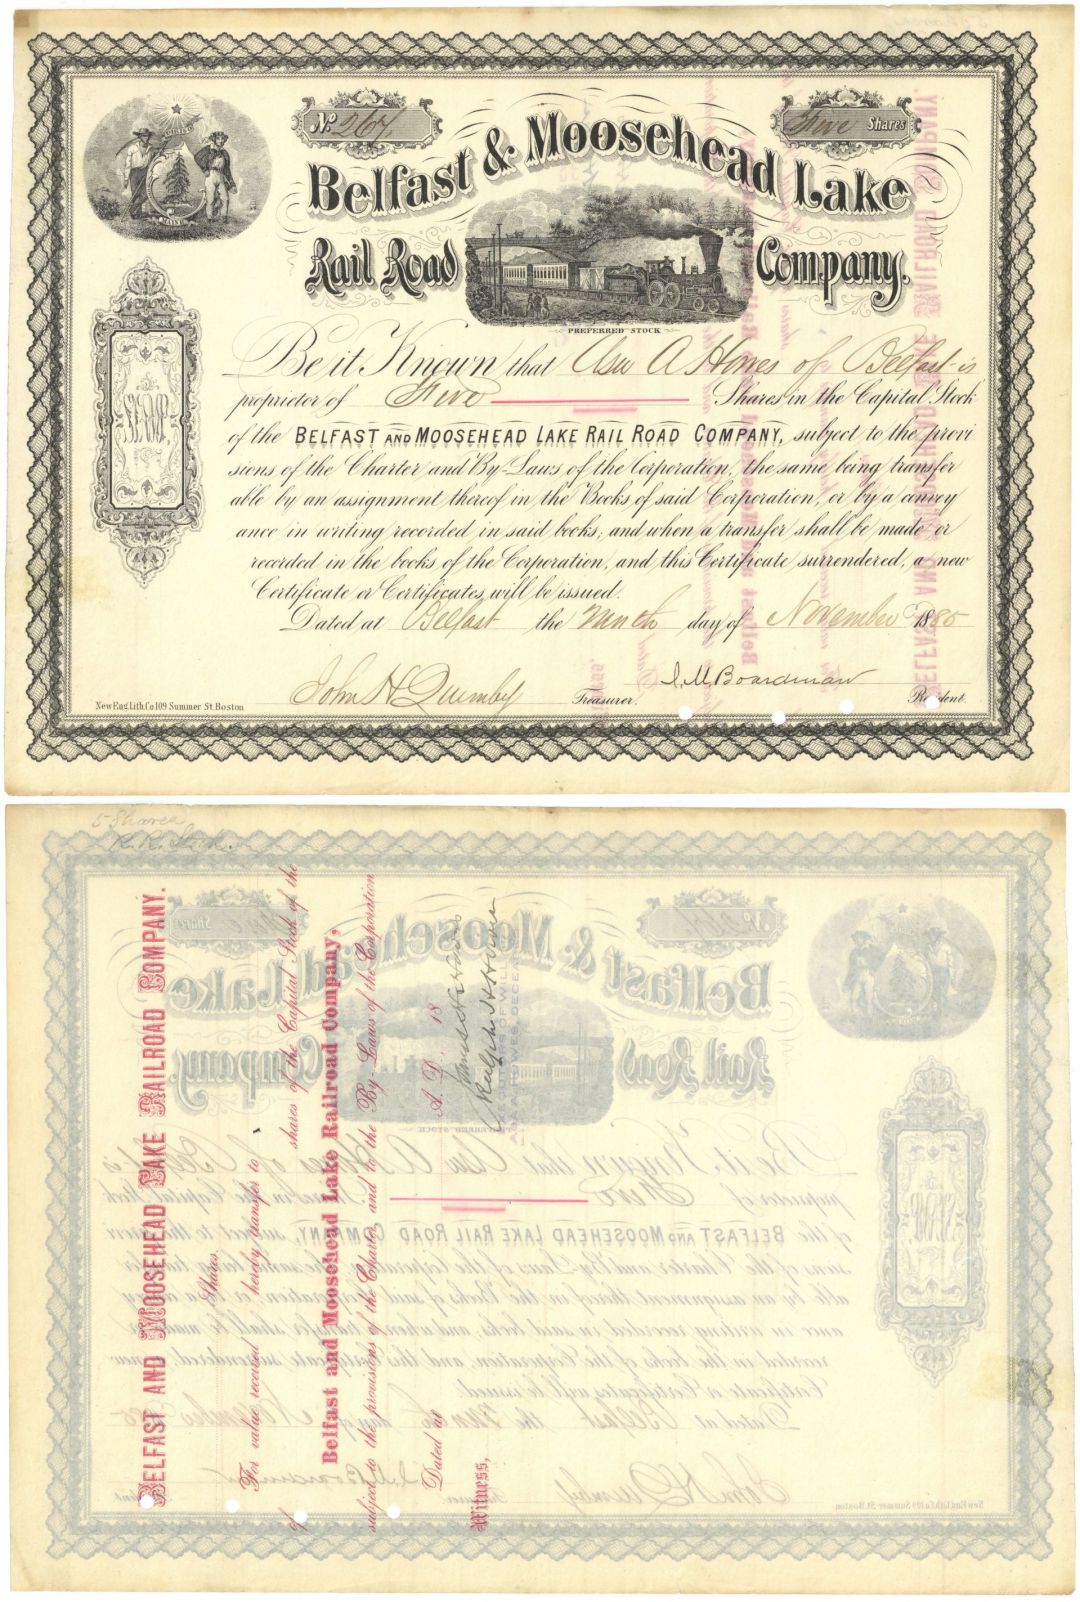 No. 267
Five Shares
Belfast & Moosehead Lake
Rail Road Company.
MAINE
PREFERRED STOCK
Be it Known that Asa A Howes of Belfast is
proprietor of Five Shares in the Capital Stock
of the BELFAST AND MOOSEHEAD LAKE RAIL ROAD COMPANY, subject to the provi
sions of the Charter and By-Laws of the Corporation, the same being transfer
able by an assignment thereof in the Books of said Corporation, or by a convey
ance in writing recorded in said books; and when a transfer shall be made or
recorded in the books of the Corporation, and this Certificate surrendered, a new
Certificate or Certificates will be issued.
Dated at Belfast the ninth day of November 1885
John H Quimby Treasurer. I. M. Boardman President.
New Eng. Lith. Co 109 Summer St. Boston
SHARES
5 Shares
R. R. Stock.
BELFAST AND MOOSEHEAD LAKE RAILROAD COMPANY.
Shares
For value received hereby transfer to
of shares of the Capital Stock of the
Belfast and Moosehead Lake Railroad Company,
subject to the provisions of the Charter, and to the By-Laws of the Corporation
Dated at A. D. 18
Witness,
James H Howes
Ralph H Howes